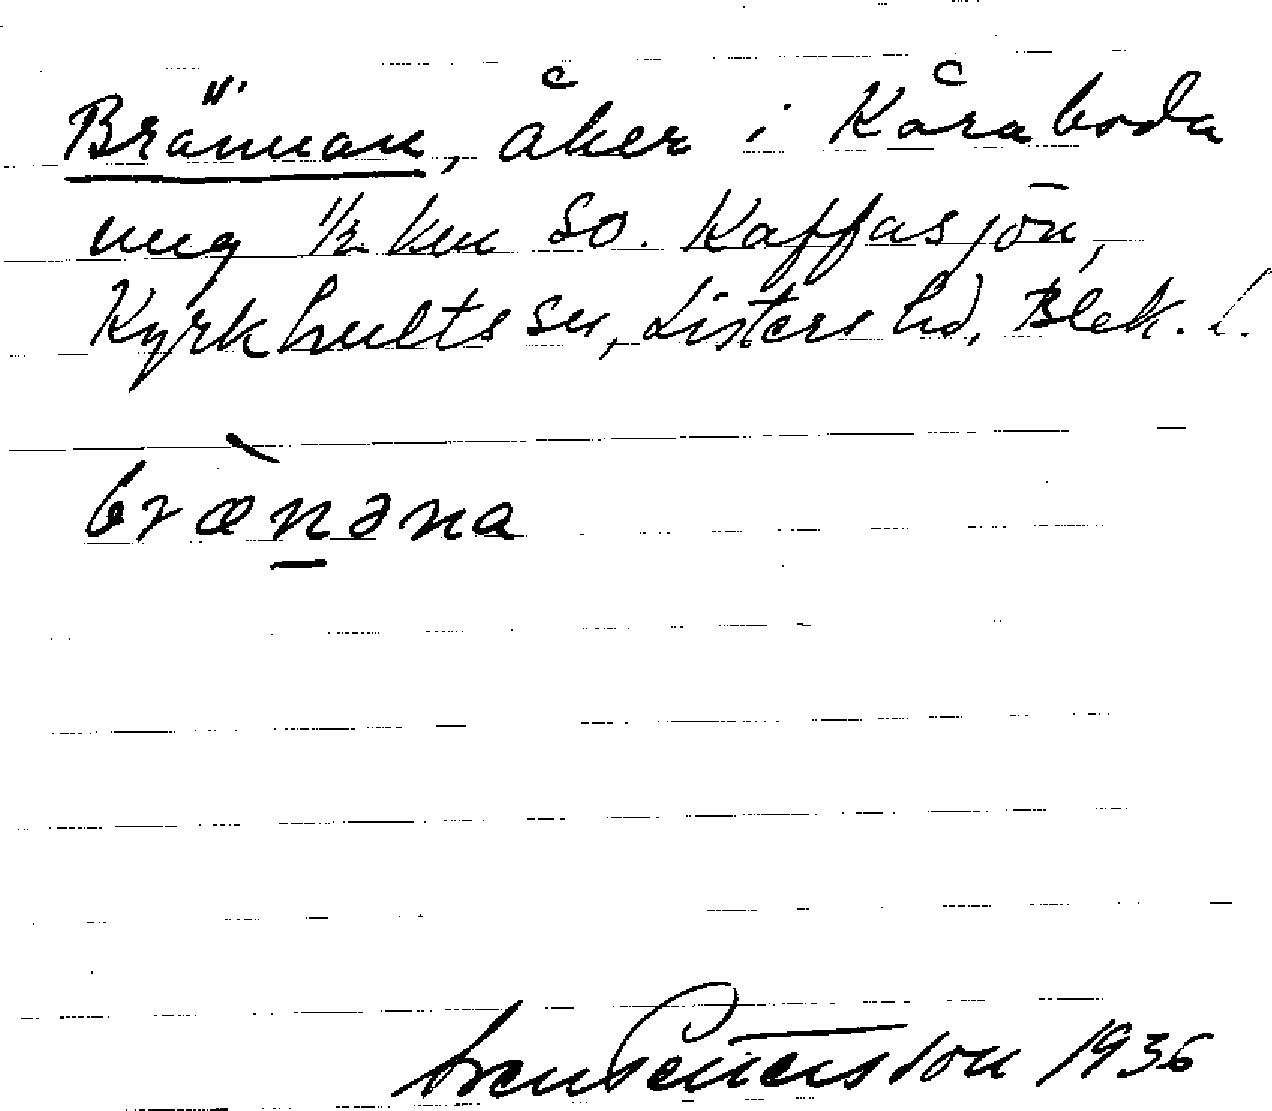 Brännan, åker i Kåraboda
ung 1/2 km SO. Kaffasjön,
Kyrkhults sn, Listers hd, Blek. l.
bræ̀nəna
Sven Pettersson 1936